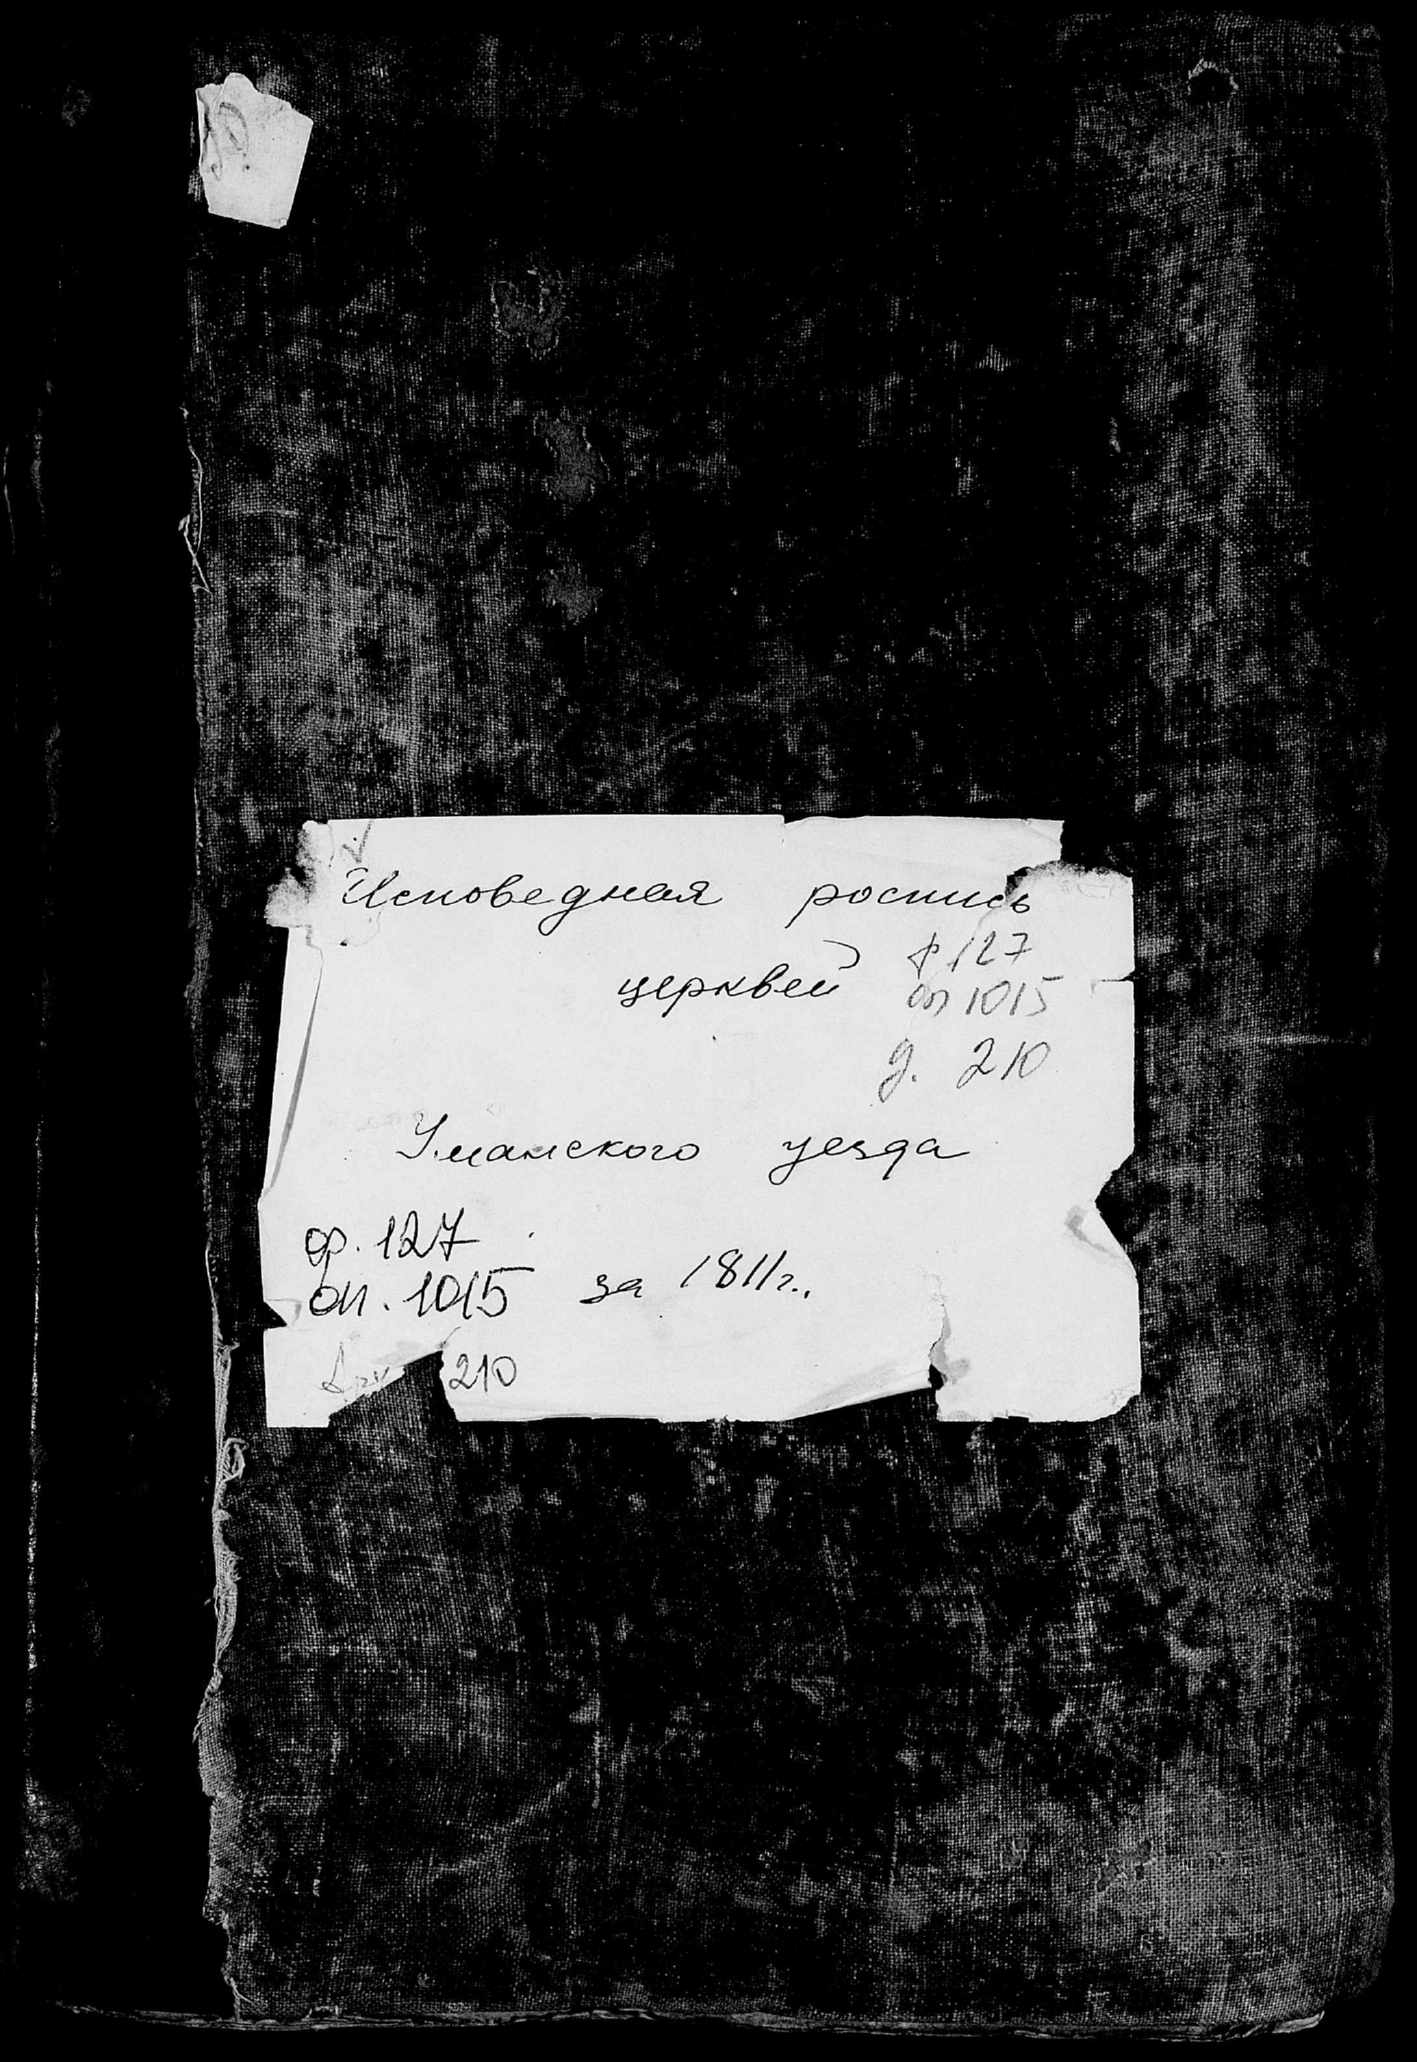 Исповедная роспись
церквей
ф 127
оп 1015
д. 210
Уманского уезда
ф. 127
оп. 1015 за 1811г.,
210